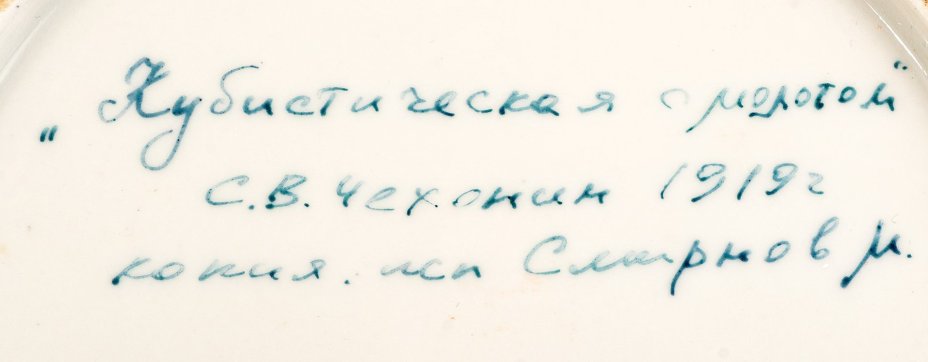 „Кубистическая с молотом"
С.В. Чехонин 1919г
копия. исп Смирнов М.